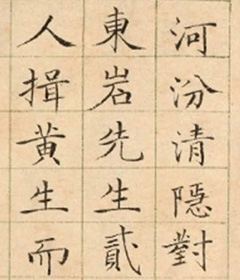 河汾清隱對
東岩先生貳
人揖黃生而